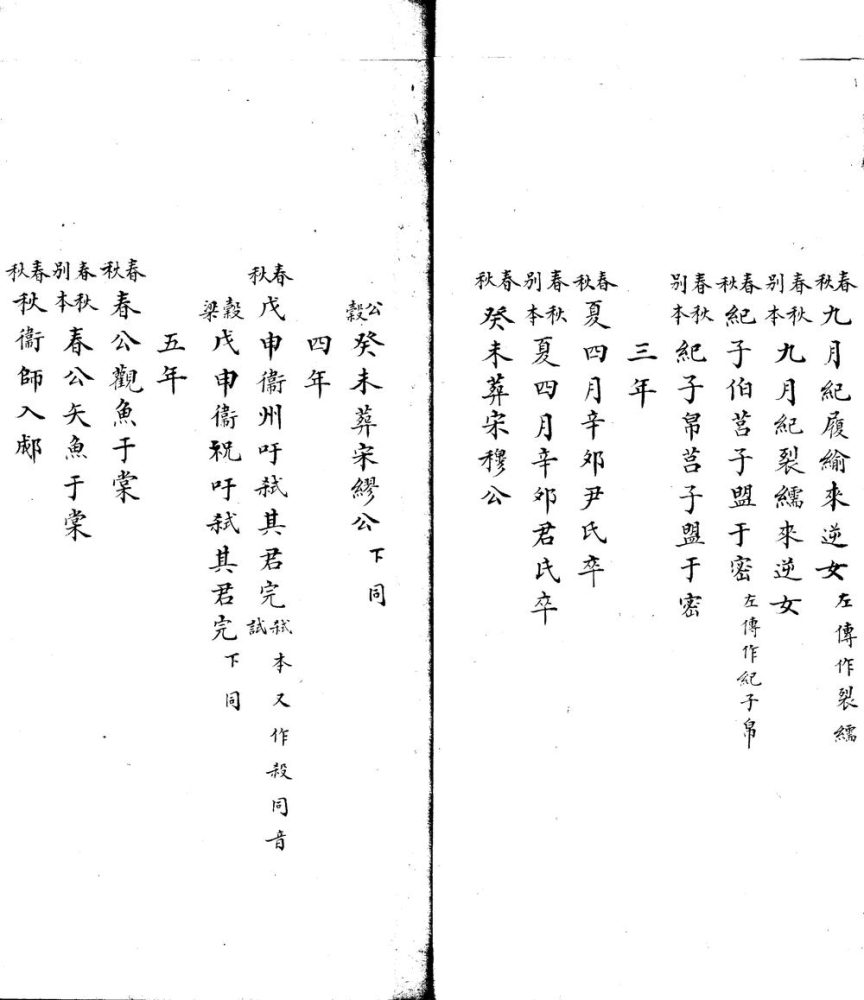 春秋九月紀履緰來逆女左傳作裂繻
春秋別本九月紀裂繻來逆女
春秋紀子伯莒子盟于密左傳作紀子帛
春秋別本紀子帛莒子盟于密
三年
春秋夏四月辛夘尹氏卒
春秋別本夏四月辛夘君氏卒
春秋癸未葬宋穆公
公穀癸未葬宋繆公下同
四年
春秋戊申衞州吁弒其君完弒試本又作殺同音
穀梁戊申衞祝吁弒其君完下同
五年
春秋春公觀魚于棠
春秋別本春公矢魚于棠
春秋秋衞師入郕